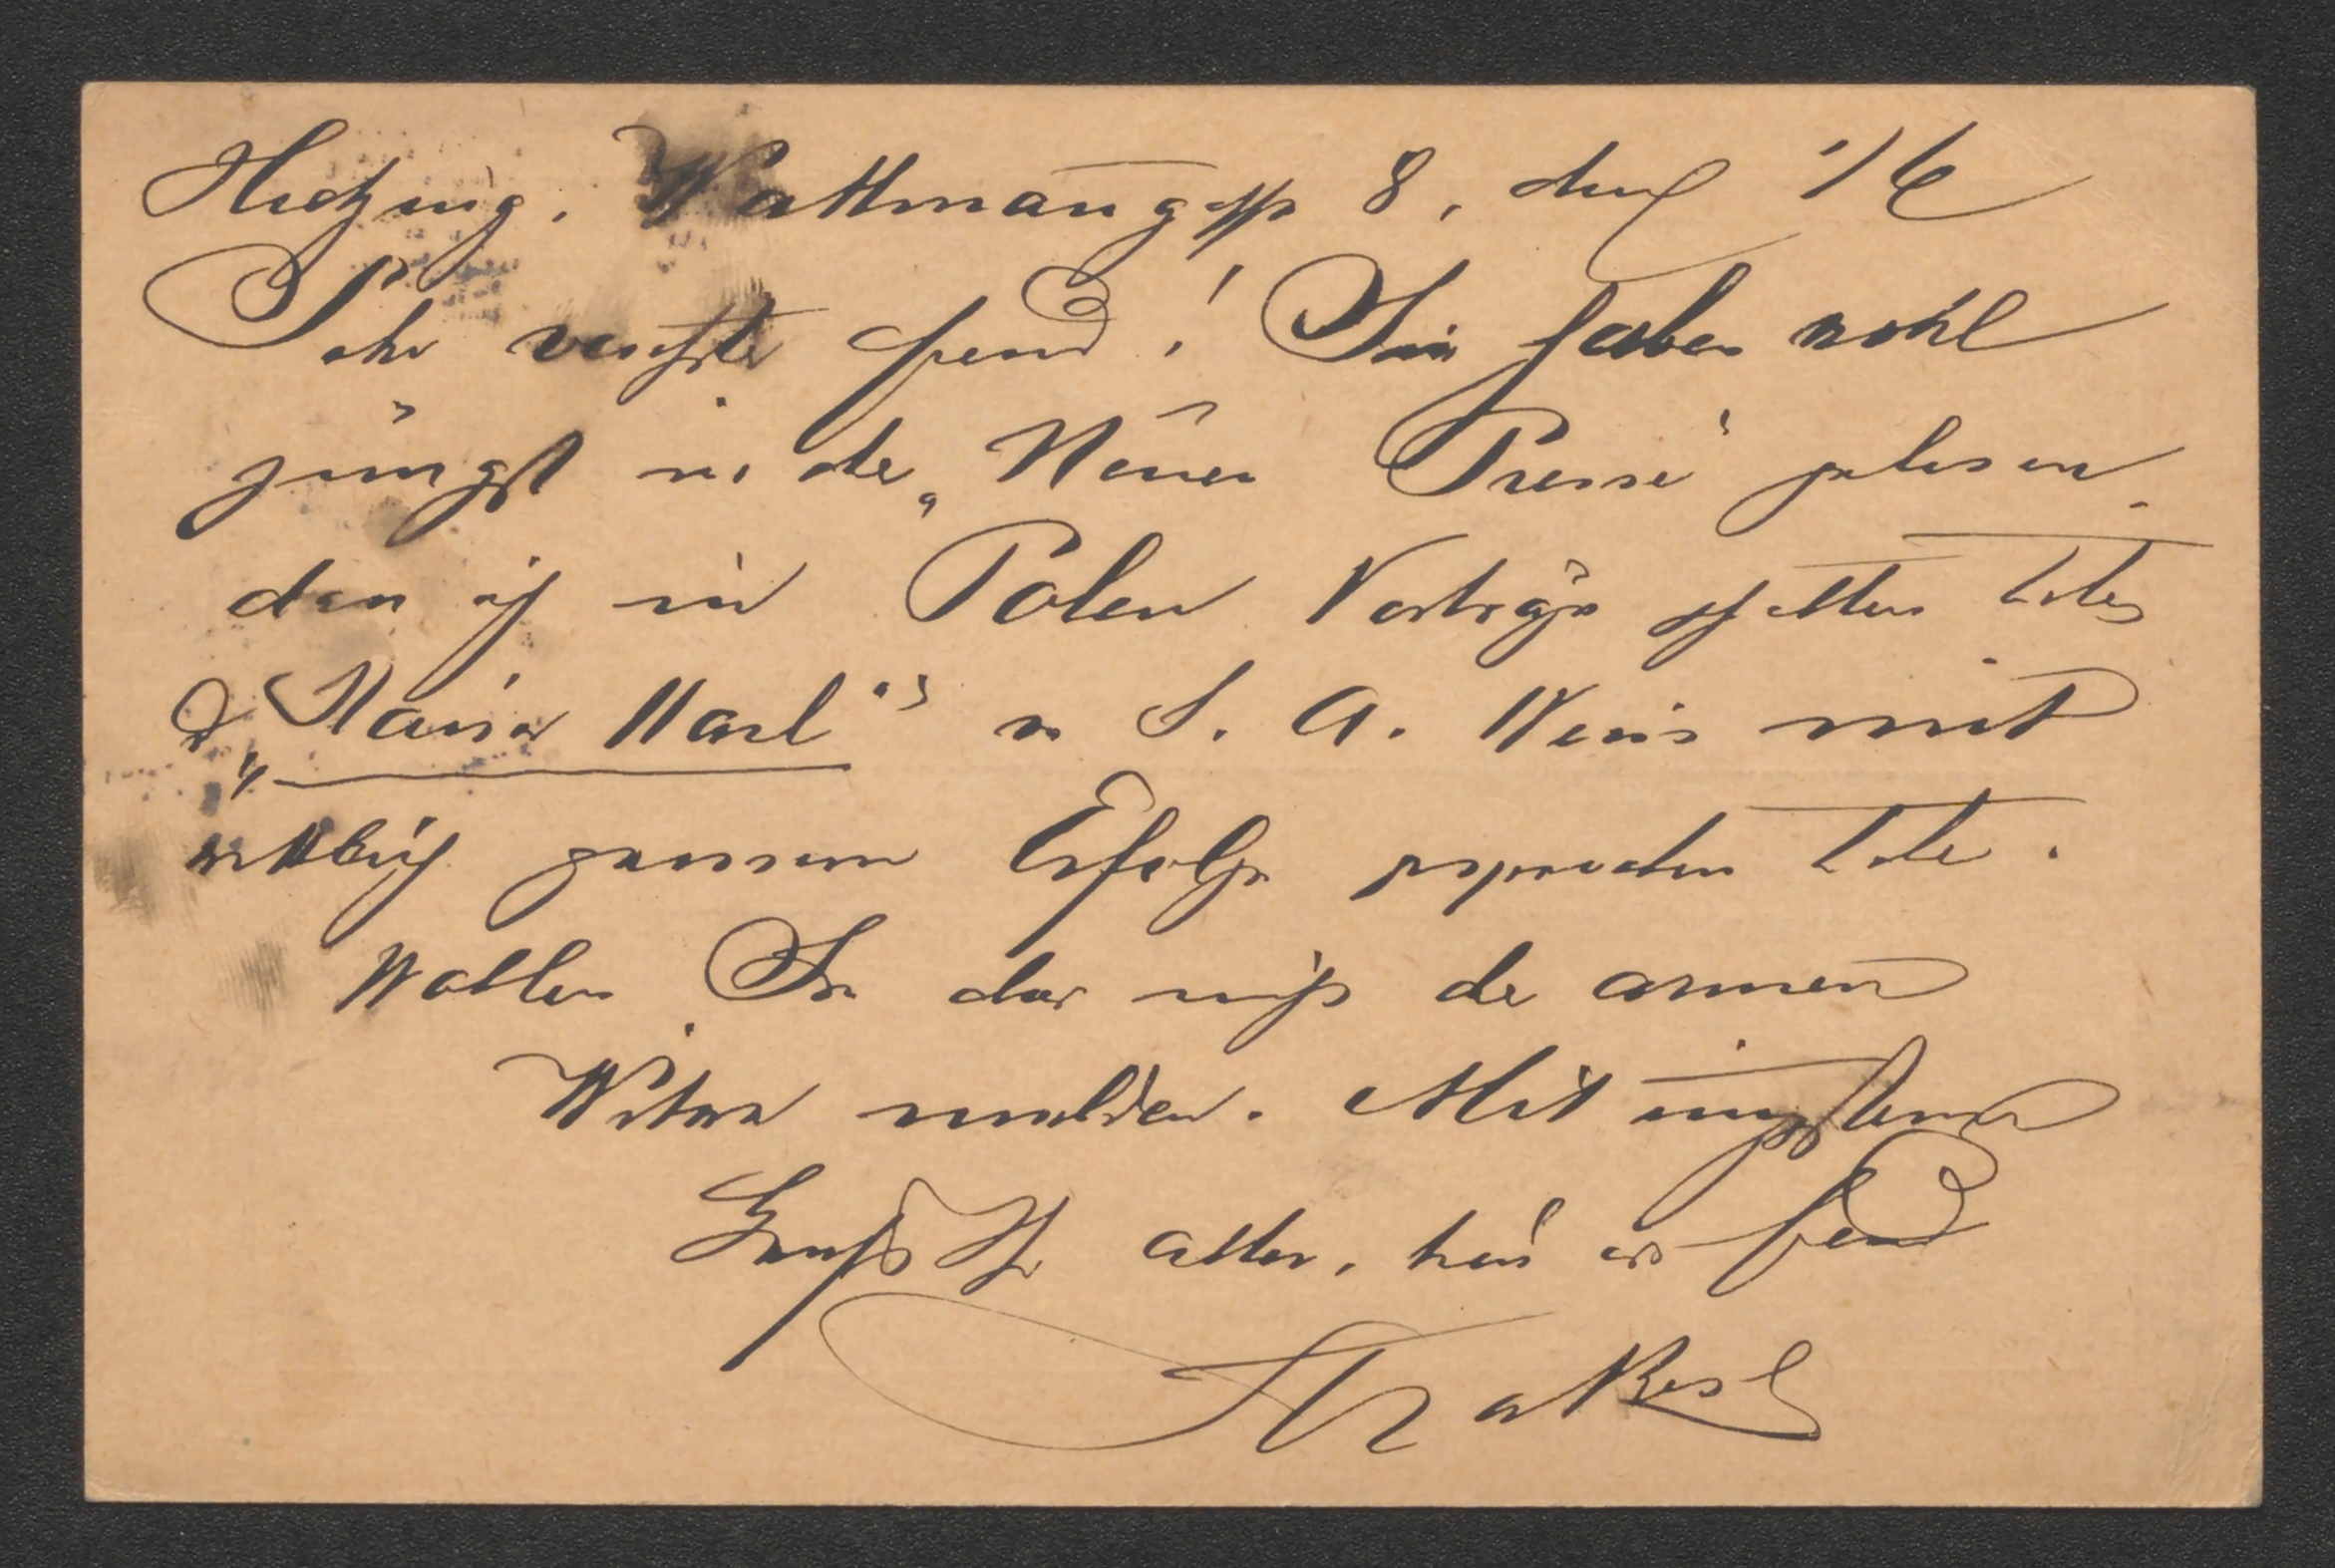 Hietzing, Wattmangasse 8, den 1/6
Sehr verehrter Freund! Sie haben wohl
jüngst in der „Neuen Presse“ gelesen,
dass ich in Polen Vorträge
„Kaiser Karl“ v S. A. Weiss mit
wirklich grossem Erfolge gesprochen habe.
Wollen Sie das der armen
Witwe melden. Mit innigstem
Gruß Ihr alter, treu erg Freund